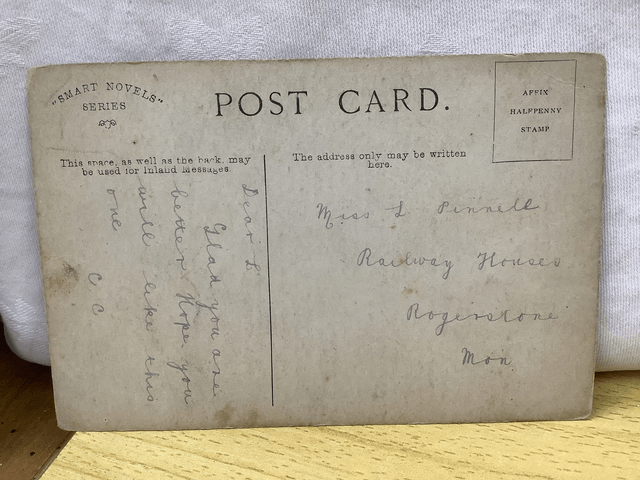 "SMART NOVELS"
SERIES
POST CARD.
AFFIX
HALFPENNY
STAMP
This space, as well as the back, may
be used for Inland Messages.
The address only may be written
here.
Dear L
Glad you are
better Hope you
will like this
one
C C
Miss L Pinnell
Railway Houses
Rogerstone
Mon